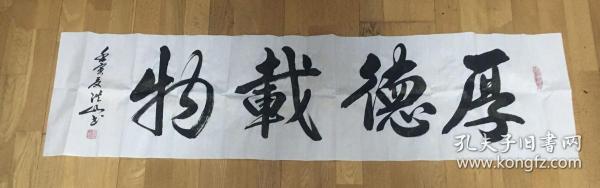 厚德載物
壬寅夏洪山书
孔夫子旧书网
www.kongfz.com